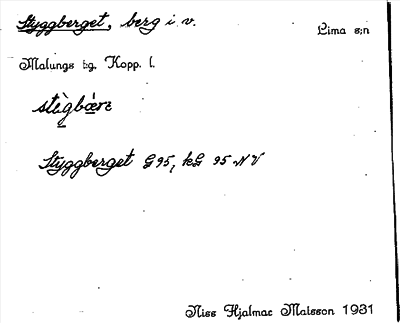 Styggberget, berg i v.
Lima s:n
Malungs t:g, Kopp. l.
stègbære
Styggberget G 95, kG 95 NV
Niss Hjalmar Matsson 1931